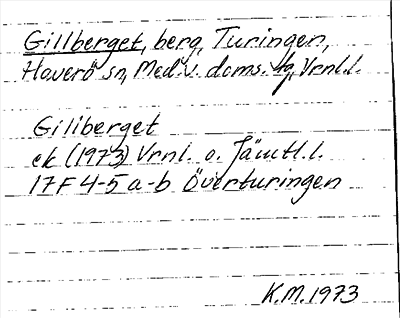 Gillberget, berg, Turingen,
Haverö sn, Med. v. doms. hg, Vrnl.l.
Gillberget
ek (1973) Vrnl. o. Jämtl. l.
17F 4-5 a-b Överturingen
K.M. 1973